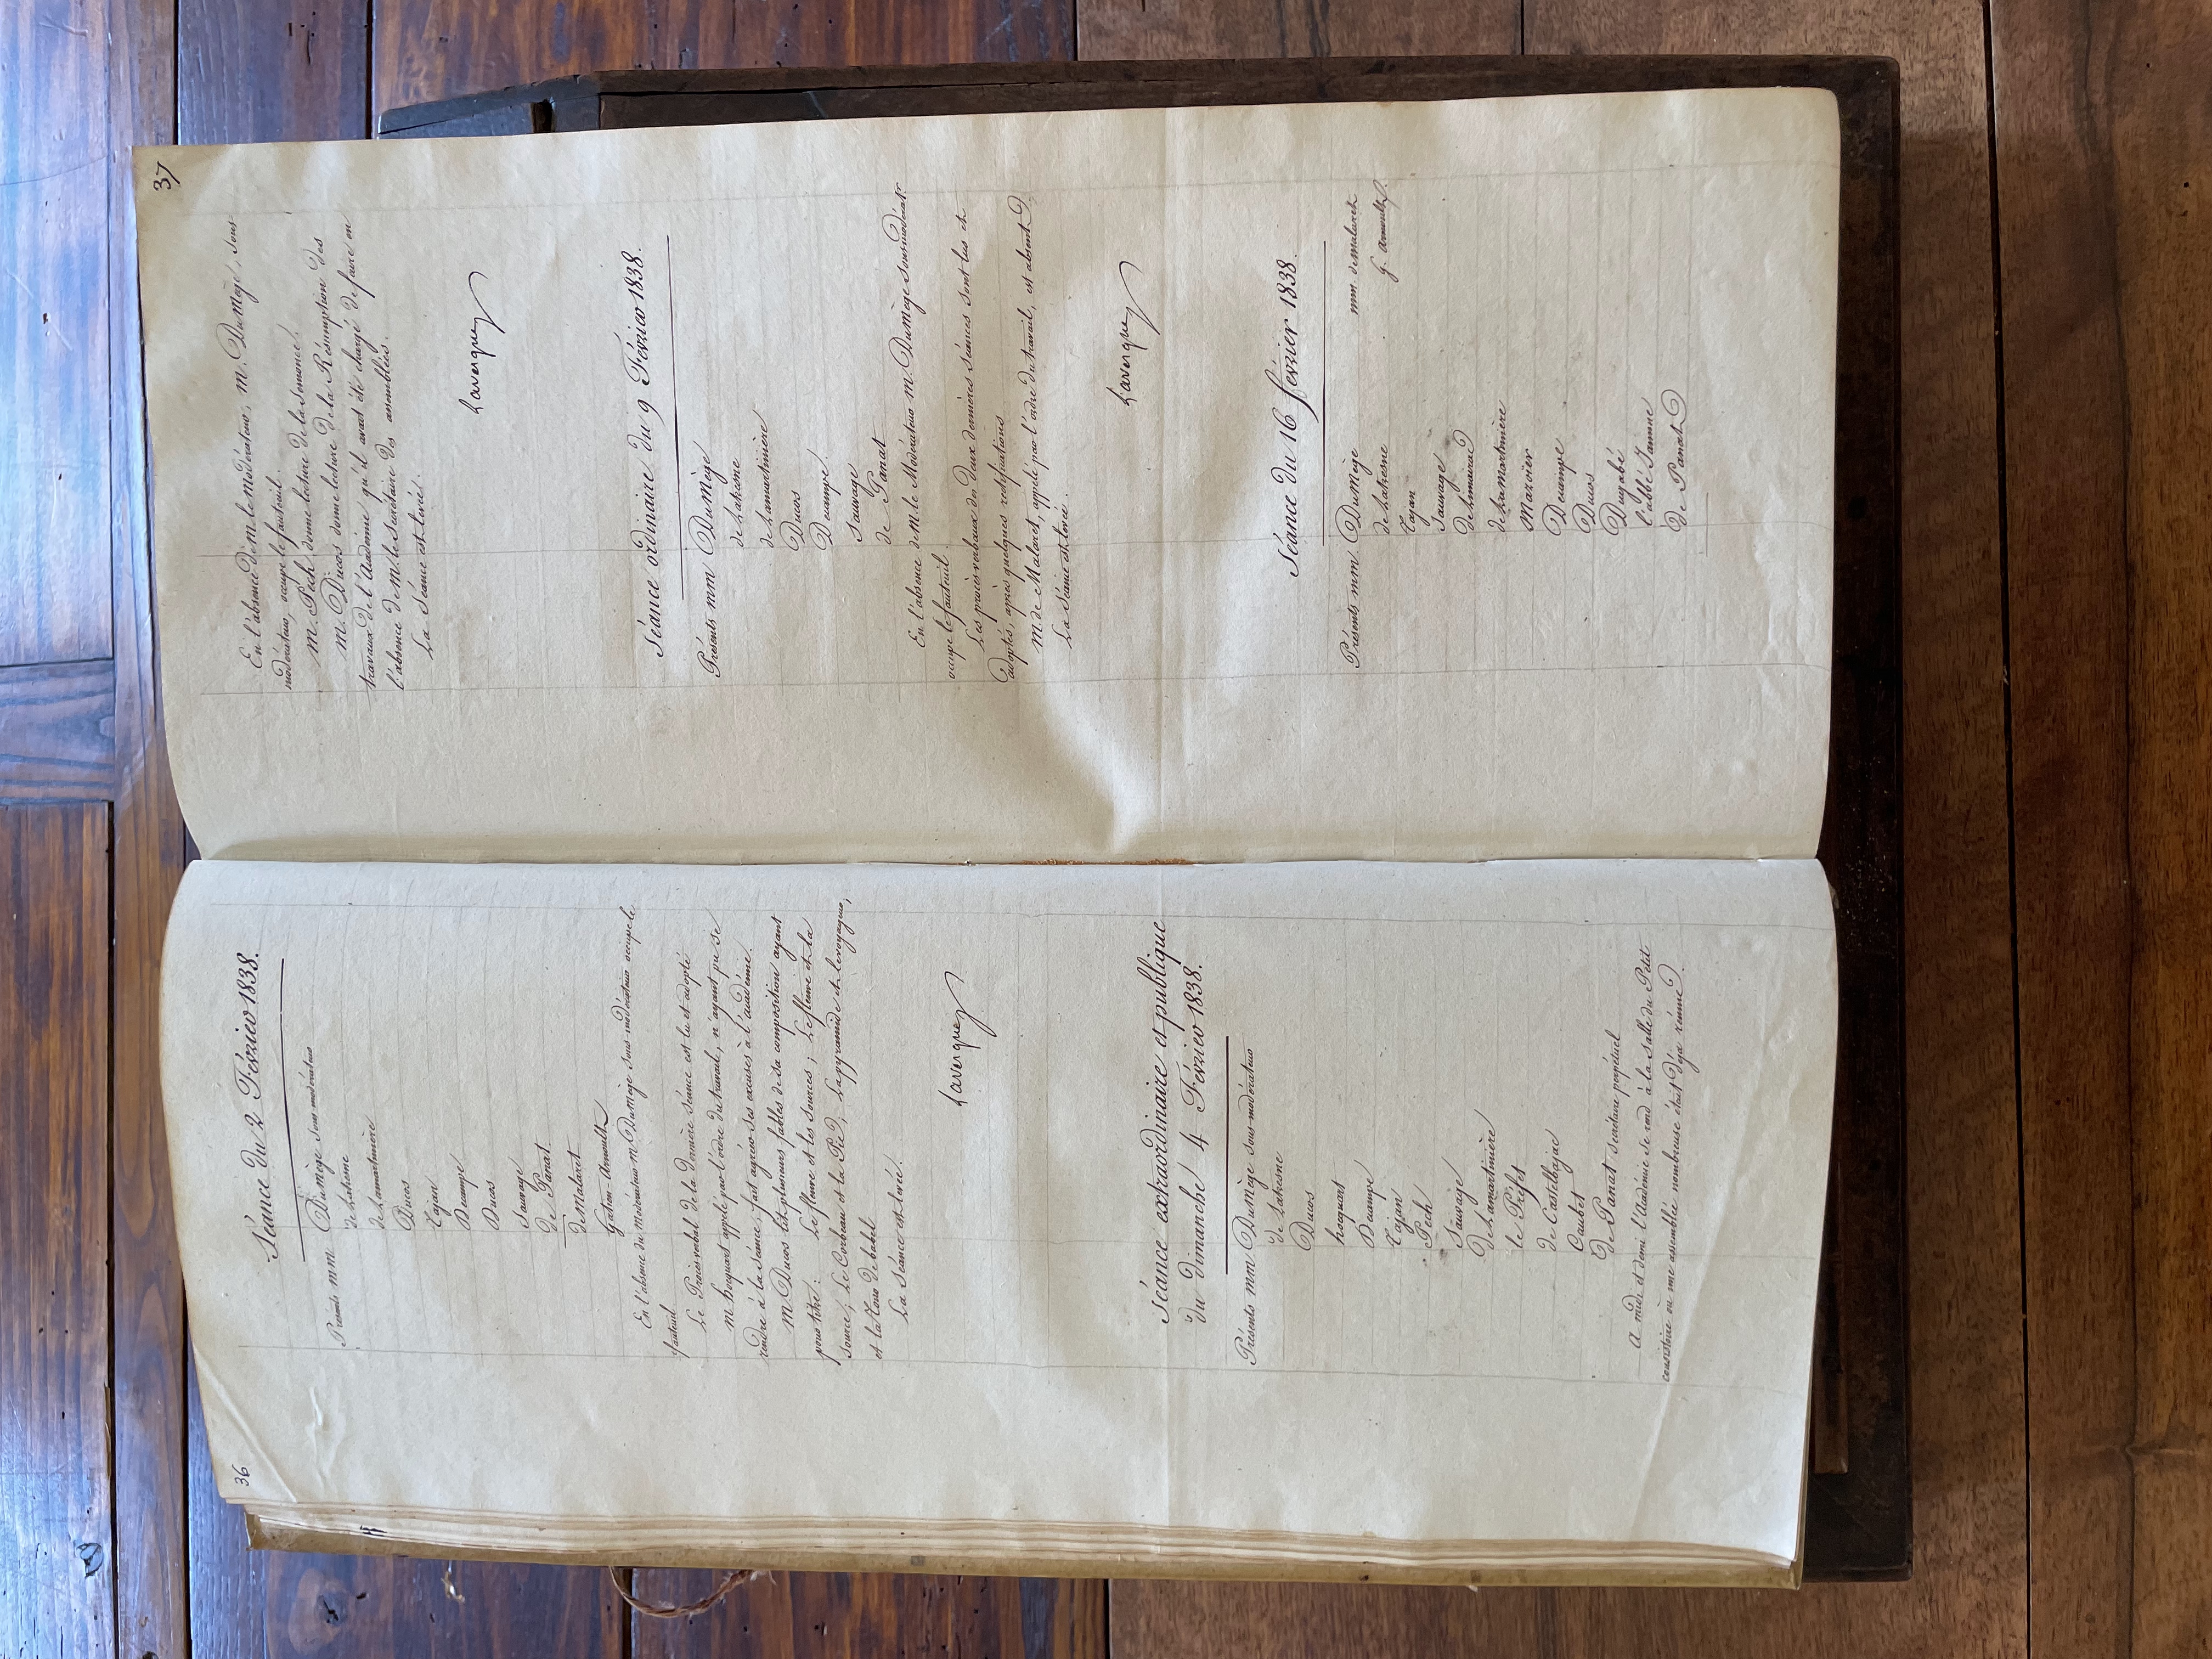 36
Séance du 2 Février 1838.
Présents mm Dumège sous-modérateur
de Lahesne
de Lamartinière
Ducos
Tajan
Decampe
Ducos
Sauvage
de Panat
de Malaret
Gatien-Arnoult
En l'absence du modérateur M. Dumège sous-modérateur occupe le
fauteuil
Le Procès verbal de la dernière séance est lu et adopté
M hocquart appelé par l'ordre du travail, n'ayant pu se
rendre à la séance, fait agréer ses excuses à l'académie.
M Ducos lit plusieurs fables de sa composition ayant
pour titre: Le fleuve et les sources; Le fleuve et la
source; Le Corbeau et la Pie; La pyramide et le voyageur,
et la Tour de babel
La Séance est levée.
Lavergne
Séance extraordinaire et publique
du dimanche 4 Février 1838.
Présents mm Dumège sous-modérateur
de Lahesne
Ducos
hocquart
Decampe
Tajan
Pech
Sauvage
de Lamartinière
le Préfet
de Castelbajac
Caubet
de Panat secrétaire perpétuel
A midi et demi l'Académie se rend à la salle du Petit
consistoire où une assemblée nombreuse était déjà réunie
37
En l'absence de M le modérateur, M. Dumège, sous
modérateur, occupe le fauteuil.
M. Pech donne lecture de la semonce.
M. Ducos donne lecture de la Résumption des
travaux de l'Académie qu'il avait été chargé de faire en
l'absence de M. le Secrétaire des assemblées.
La Séance est levée.
Lavergne
Séance ordinaire du 9 Février 1838.
Présents mm Dumège
de Lahesne
de Lamartinière
Ducos
Decampe
Sauvage
de Panat
En l'absence de M le Modérateur M. Dumège sous modératr
occupe le fauteuil.
Les procès verbaux des deux dernières séances sont lus et
adoptés, après quelques rectifications
M. de Malaret, appelé par l'ordre du travail, est absent
La séance est levée.
Lavergne
Séance du 16 février 1838.
Présents mm. Dumège mm. de malaret
de Lahesne g. Arnoult
Tajan
Sauvage
de Limairac
de Lamartinière
Decampe
Ducos
Dugabé
l'abbé Jamme
de Panat